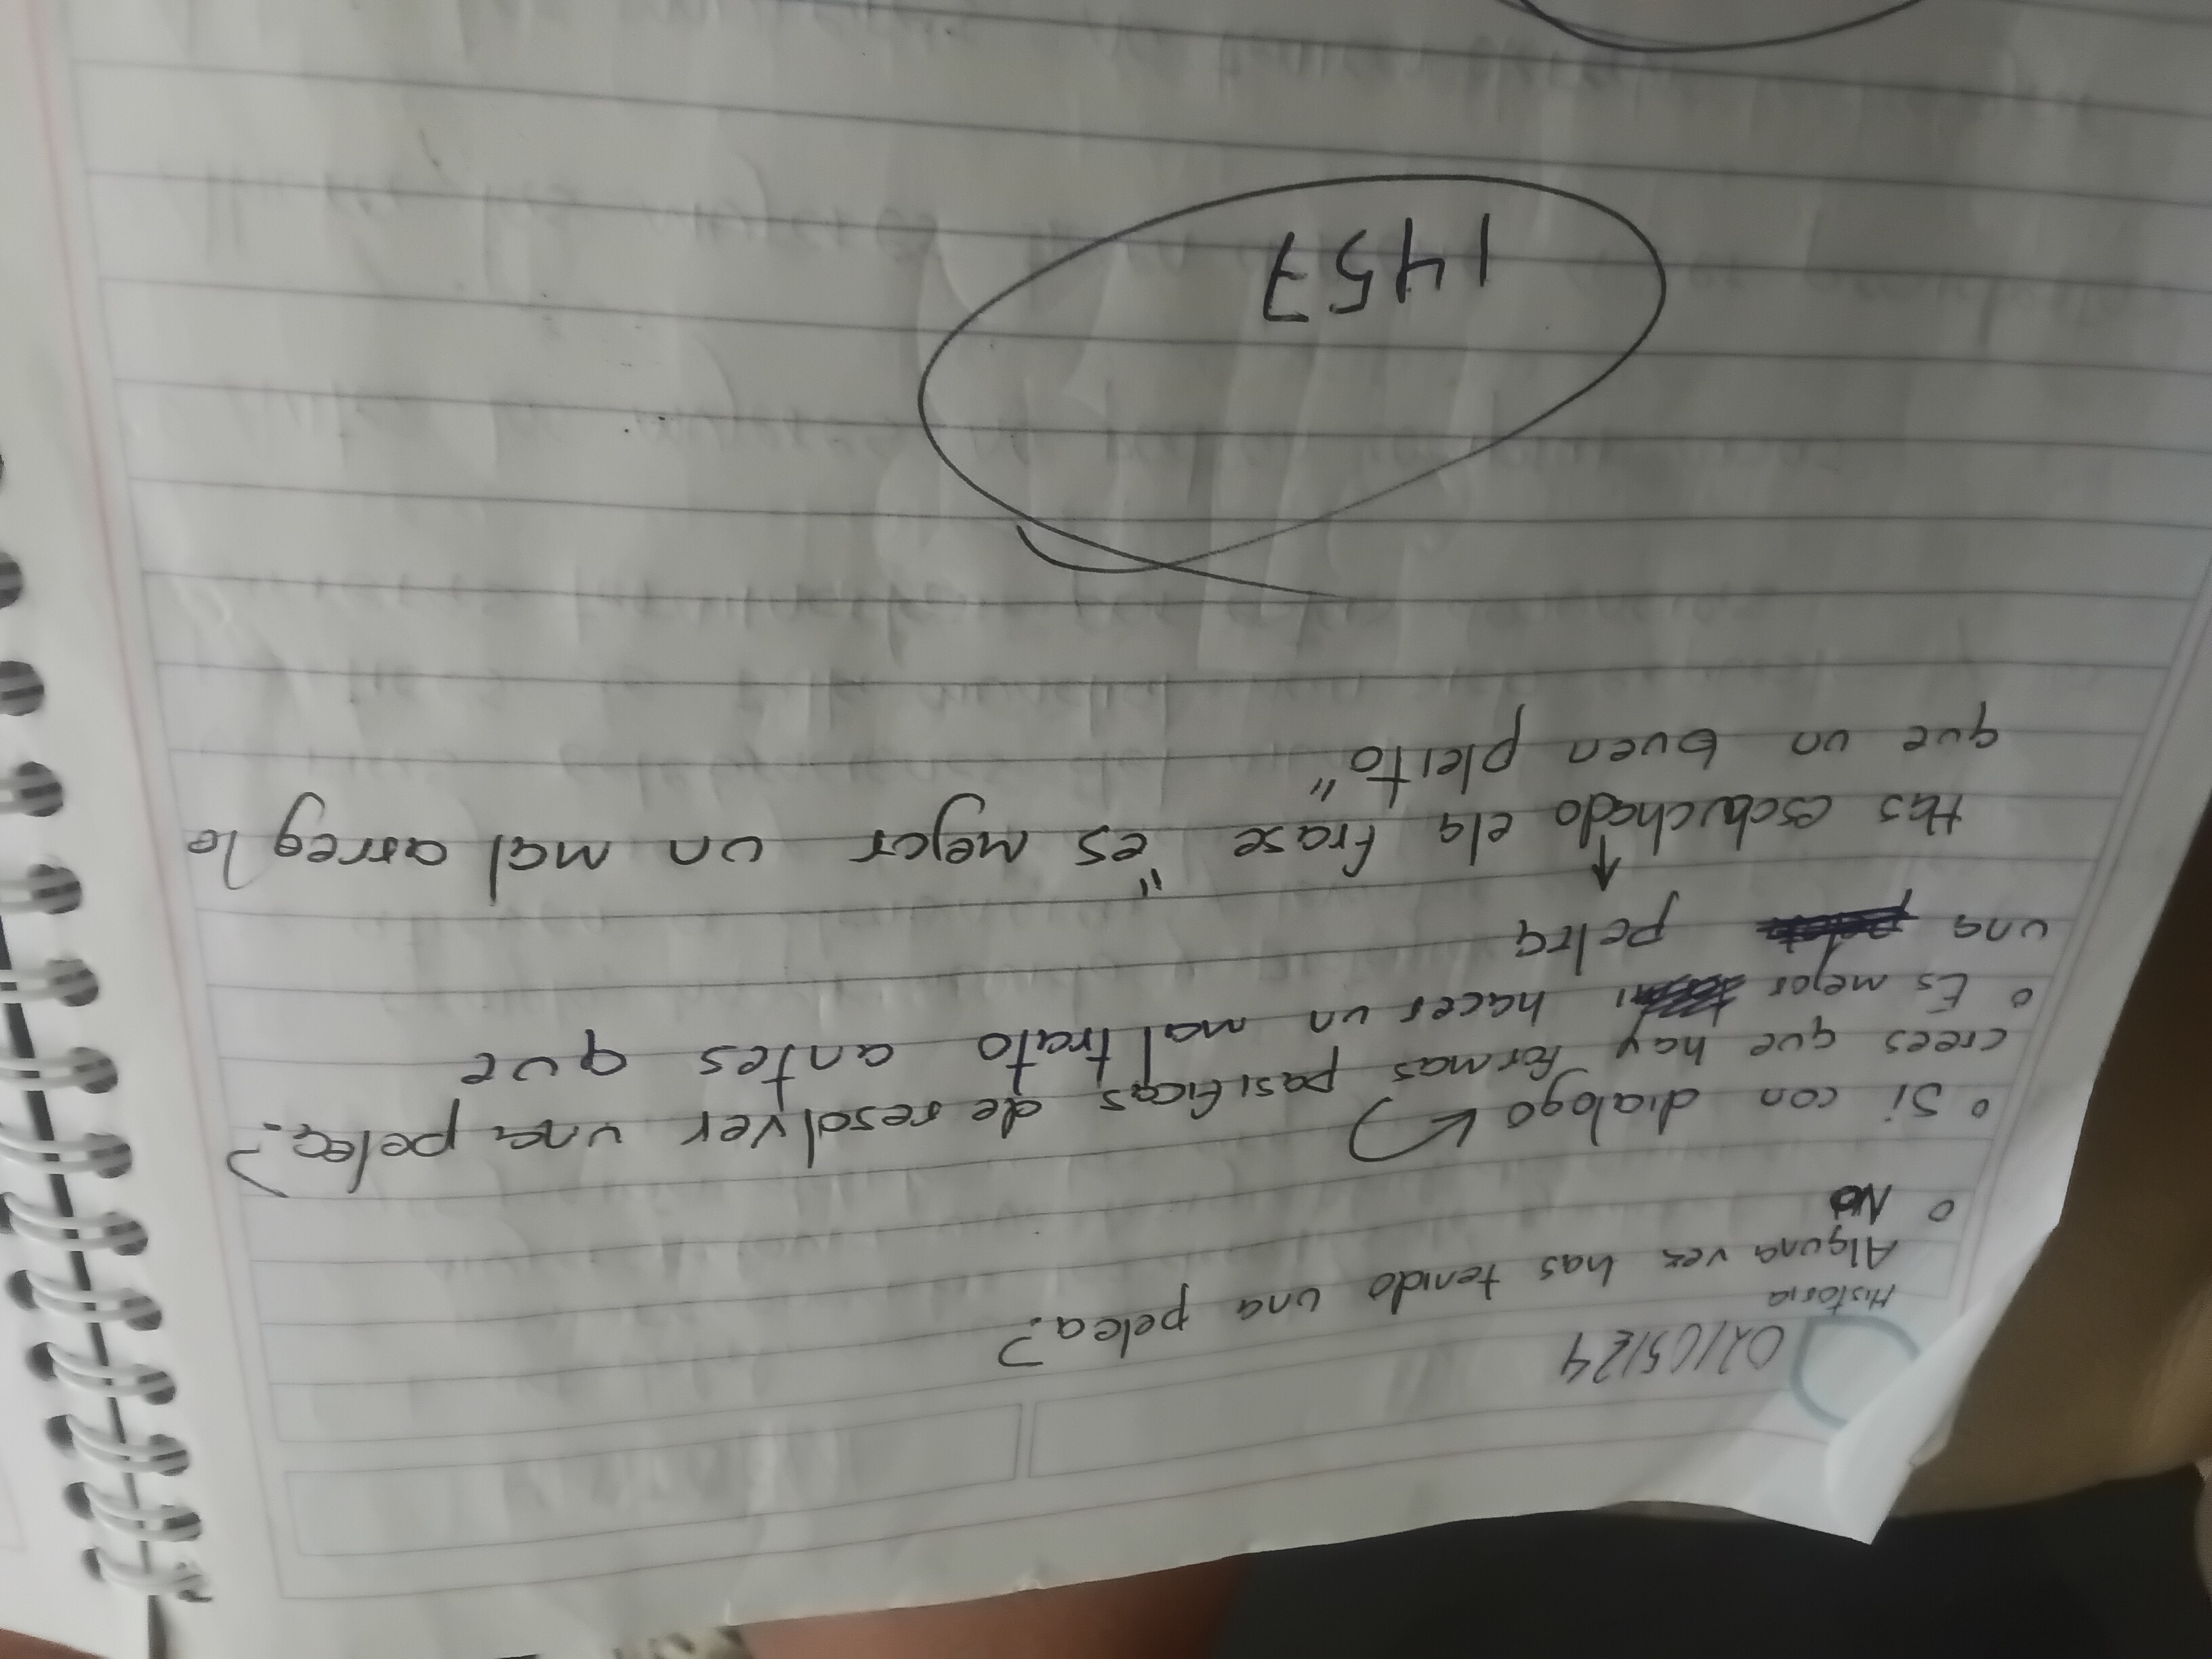 02/05/24
Historia
Alguna vez has tenido una pelea?
° No
crees que hay formas pasificas de resolver una pelea?
° Si con dialogo
Has escuchado ela frase "es mejor un mal arreglo
que un buen pleito"
° Es mejor hacer un mal trato antes que
una pelea
1457